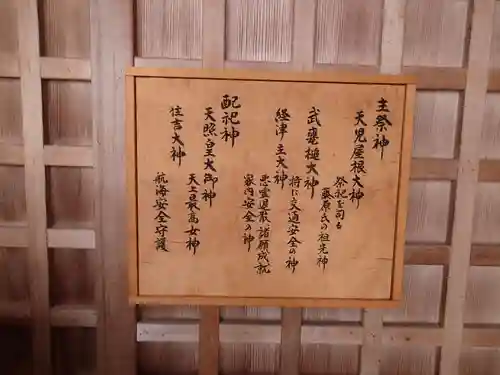 主祭神
天児屋根大神
祭祀を司る
藤原氏の祖先神
武甕槌大神
特に交通安全の神
経津主大神
悪霊退散諸願成就
家内安全の神
配祀神
天照皇大御神
天上最高女神
住吉大神
航海安全守護